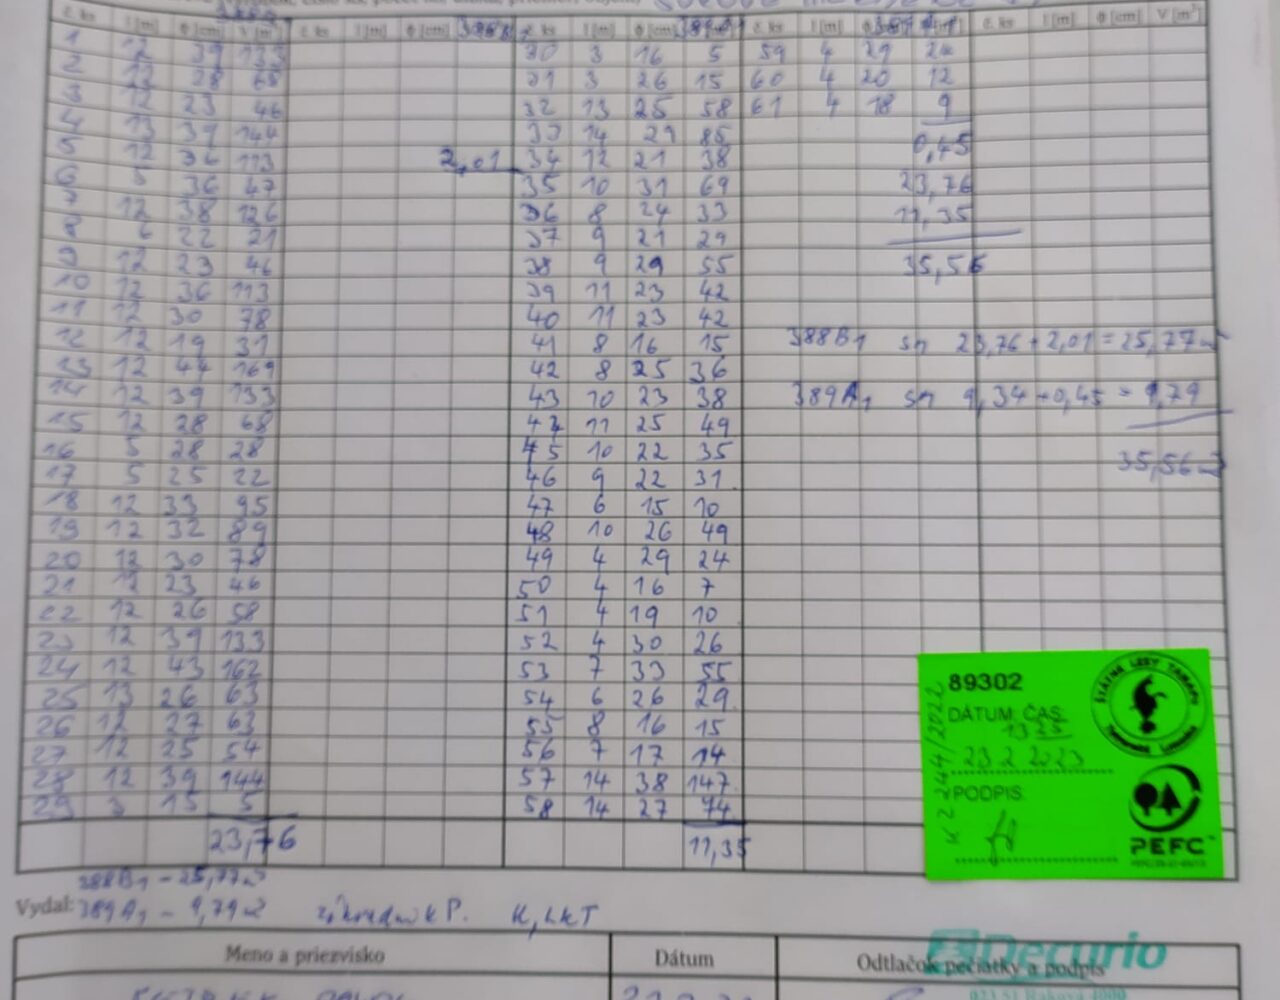 č. ks l [m] ϕ [cm] V [m³] č. ks l [m] ϕ [cm] č. ks l [m] ϕ [cm] č. ks l [m] ϕ [cm] č. ks l [m] ϕ [cm] V [m³]
1 12 39 133 30 3 16 5 59 4 29 24
2 12 28 68 31 3 26 15 60 4 20 12
3 12 23 46 32 13 25 58 61 4 18 9
4 13 39 144 33 14 29 85 0,45
5 12 36 113 2,01 34 12 21 38
6 5 36 47 35 10 31 69 23,76
7 12 38 126 36 8 24 33 11,35
8 6 22 21 37 9 21 29
9 12 23 46 38 9 29 55 35,56
10 12 36 113 39 11 23 42
11 12 30 78 40 11 23 42
12 12 19 31 41 8 16 15 388B1 sm 23,76 + 2,01 = 25,77 m³
13 12 44 169 42 8 25 36
14 12 39 133 43 10 23 38 389A1 sm 9,34 + 0,45 = 9,79
15 12 28 68 44 11 25 49
16 5 28 28 45 10 22 35 35,56 m³
17 5 25 22 46 9 22 31
18 12 33 95 47 6 15 10
19 12 32 89 48 10 26 49
20 12 30 78 49 4 29 24
21 12 23 46 50 4 16 7
22 12 26 58 51 4 19 10
23 12 39 133 52 4 30 26
24 12 43 162 53 7 33 55
25 13 26 63 54 6 26 29
26 12 27 63 55 8 16 15
27 12 25 54 56 7 17 14
28 12 39 144 57 14 38 147
29 3 15 5 58 14 27 74
23,76 11,35
388B1 – 25,77 m³
Vydal: 389A1 – 9,79 m³
89302
DÁTUM: ČAS:
13 25
23 2 2023
PODPIS:
ŠTÁTNE LESY TANAPu
PEFC
Meno a priezvisko Dátum Odtlačok pečiatky a podpis
Decurio